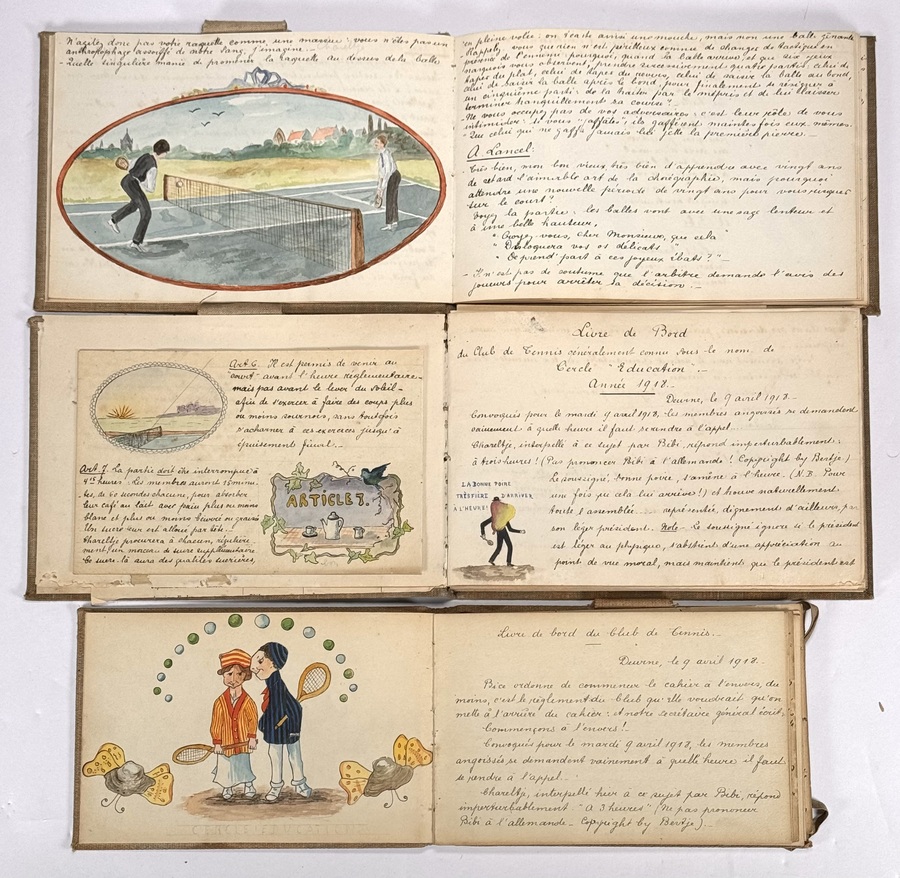 N'agitez donc pas votre raquette comme une massue : vous n'êtes pas un
anthropophage assoiffé de notre sang, j'imagine._
_Quelle singulière manie de promener la raquette au dessus de la balle
en pleine volée : on tache ainsi une mouche, mais non une balle gênante
Rappelez vous que rien n'est périlleux comme de changer de tactique en
présence de l'ennemi. Pourquoi, quand la balle arrive, et que six yeux
narquois vous observent, prendre successivement quatre partis : celui de
taper du plat, celui de taper du revers, celui de saisir la balle au bond,
celui de saisir la balle après le bond, pour finalement se résigner à
un cinquième parti : de la traiter par le mépris et de lui laisser
terminer tranquillement sa course?
_Ne vous occupez pas de vos adversaires : c'est leur rôle de vous
intimider : si vous "gaffâtes", ils gaffèrent maintes fois eux-mêmes.
_Que celui qui ne gaffa jamais leur jette la première pierre._
A Lancel:
Très bien, mon bon vieux, très bien d'apprendre avec vingt ans
de retard l'aimable art de la chorégraphie, mais pourquoi
attendre une nouvelle période de vingt ans pour vous risquer
sur le court?
Voyez la partie : les balles vont avec une sage lenteur et
à une belle hauteur,
" Croyez-vous, cher Monsieur, que cela
" Disloquera vos os délicats "
" De prendr' part à ces joyeux ébats?"_
- Il n'est pas de coutume que l'arbitre demande l'avis des
joueurs pour arrêter sa décision._
Art 6. Il est permis de venir au
"court" avant l'heure réglementaire_
mais pas avant le lever du soleil_
afin de s'exercer à faire des coups plus
ou moins sournois, sans toutefois
s'acharner à ces exercices jusqu'à
épuisement final._
Art. 7. La partie doit être interrompue à
4 1/2 heures. Les membres auront 15 minu-
tes, de 60 secondes chacune, pour absorber
leur café au lait avec pain plus ou moins
blanc et plus ou moins beurré ou graissé
Un sucre sur est alloué par tête._
Chareltje procurera à chacun, régulière-
ment, un morceau de sucre supplémentaire
Ce sucre-là aura des qualités sucrières,
ARTICLE 7.
Livre de Bord
du Club de Tennis généralement connu sous le nom de
Cercle "Education"._
Année 1918._
Deurne, le 9 avril 1918._
Convoqués pour le mardi 9 avril 1918, les membres angoissés se demandent
vainement à quelle heure il faut se rendre à l'appel._
Chareltje, interpellé à ce sujet par Bibi, répond imperturbablement :
à trois heures! (Pas prononcer Bibi à l'allemande! Copyright by Bertje.)
Le soussigné, bonne poire, s'amène à l'heure. (N.B. Pour
une fois que cela lui arrive!) et trouve naturellement
toute l'assemblée ... représentée, dignement d'ailleurs, par
son léger président. Note. Le soussigné ignore si le président
est léger au physique, s'abstient d'une appréciation au
point de vue moral, mais maintient que le président est
LA BONNE POIRE
TRÈS FIÈRE D'ARRIVER
A L'HEURE!
Livre de bord du Club de Tennis._
Deurne, le 9 avril 1918._
Bice ordonne de commencer le cahier à l'envers, du
moins, c'est le règlement du Club qu'elle voudrait qu'on
mette à l'arrière du cahier; et notre secrétaire général écrit,
Commençons à l'envers!_
Convoqués pour le mardi 9 avril 1918, les membres
angoissés se demandent vainement à quelle heure il faut
se rendre à l'appel._
Chareltje, interpellé heur à ce sujet par Bibi, répond
imperturbablement "A 3 heures" (Ne pas prononcer
Bibi à l'allemande_ Copyright by Bertje)._